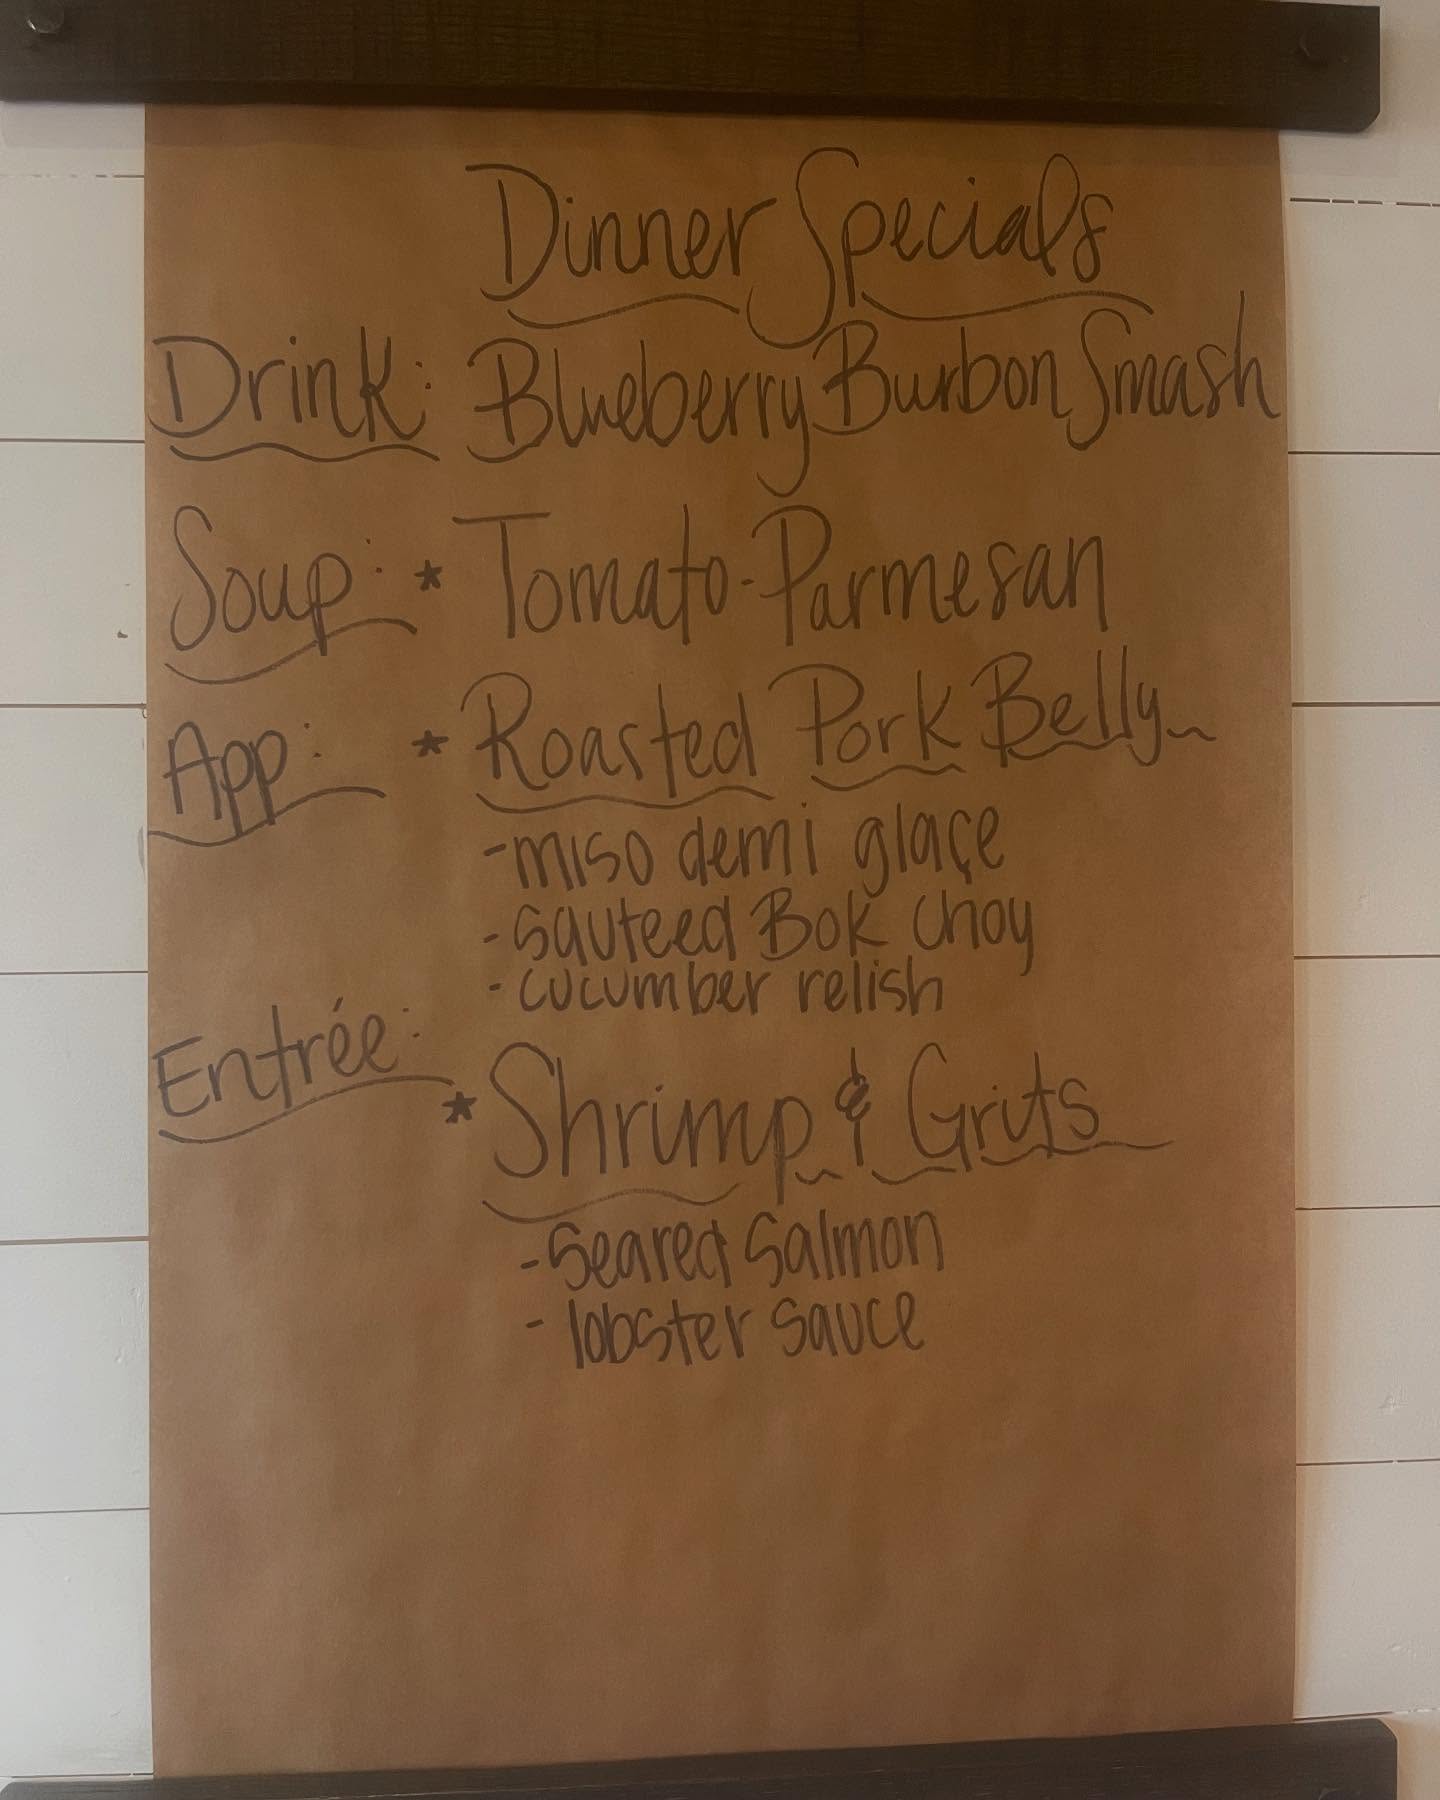 Dinner Specials
Drink: Blueberry Burbon Smash
Soup: * Tomato-Parmesan
App: * Roasted Pork Belly
-miso demi glaçe
-sauteed Bok choy
-cucumber relish
Entrée:
* Shrimp & Grits
-Seared Salmon
- lobster sauce